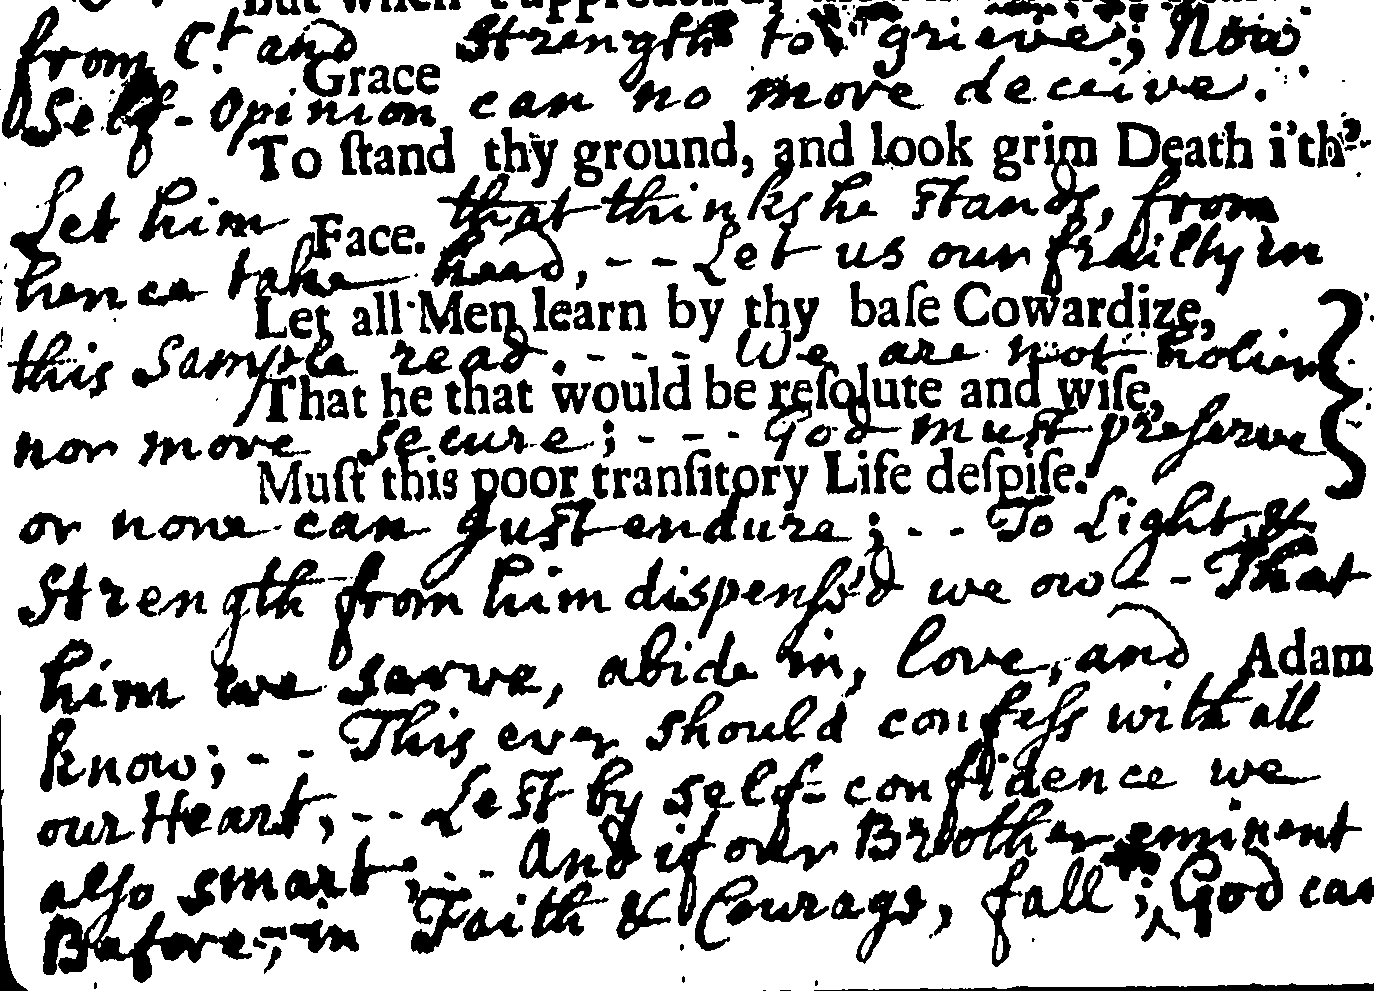 But when
from C.t and Strength to grieve; Now
Grace
Self-Opinion can no more deceive.
To ſtand thy ground, and look grim Death i'th'
Let him that thinks he Stands, from
Face.
hence take heed, -- Let us our frailty in
Let all Men learn by thy baſe Cowardize,
this Sample read. --- We are not holier
That he that would be reſolute and wiſe,
nor more secure; --- God must preserve
Muſt this poor tranſitory Life deſpiſe.
or none can Just endure; -- To Light, &
Strength from him dispenſs'd we ow -- That
him we serve, abide in, love, and
Adam
know; -- This ever should confeſs with all
our Heart, -- Lest by self-confidence we
alſo smart; -- And if our Brother eminent
Before, in Faith & Courage, fall; God can